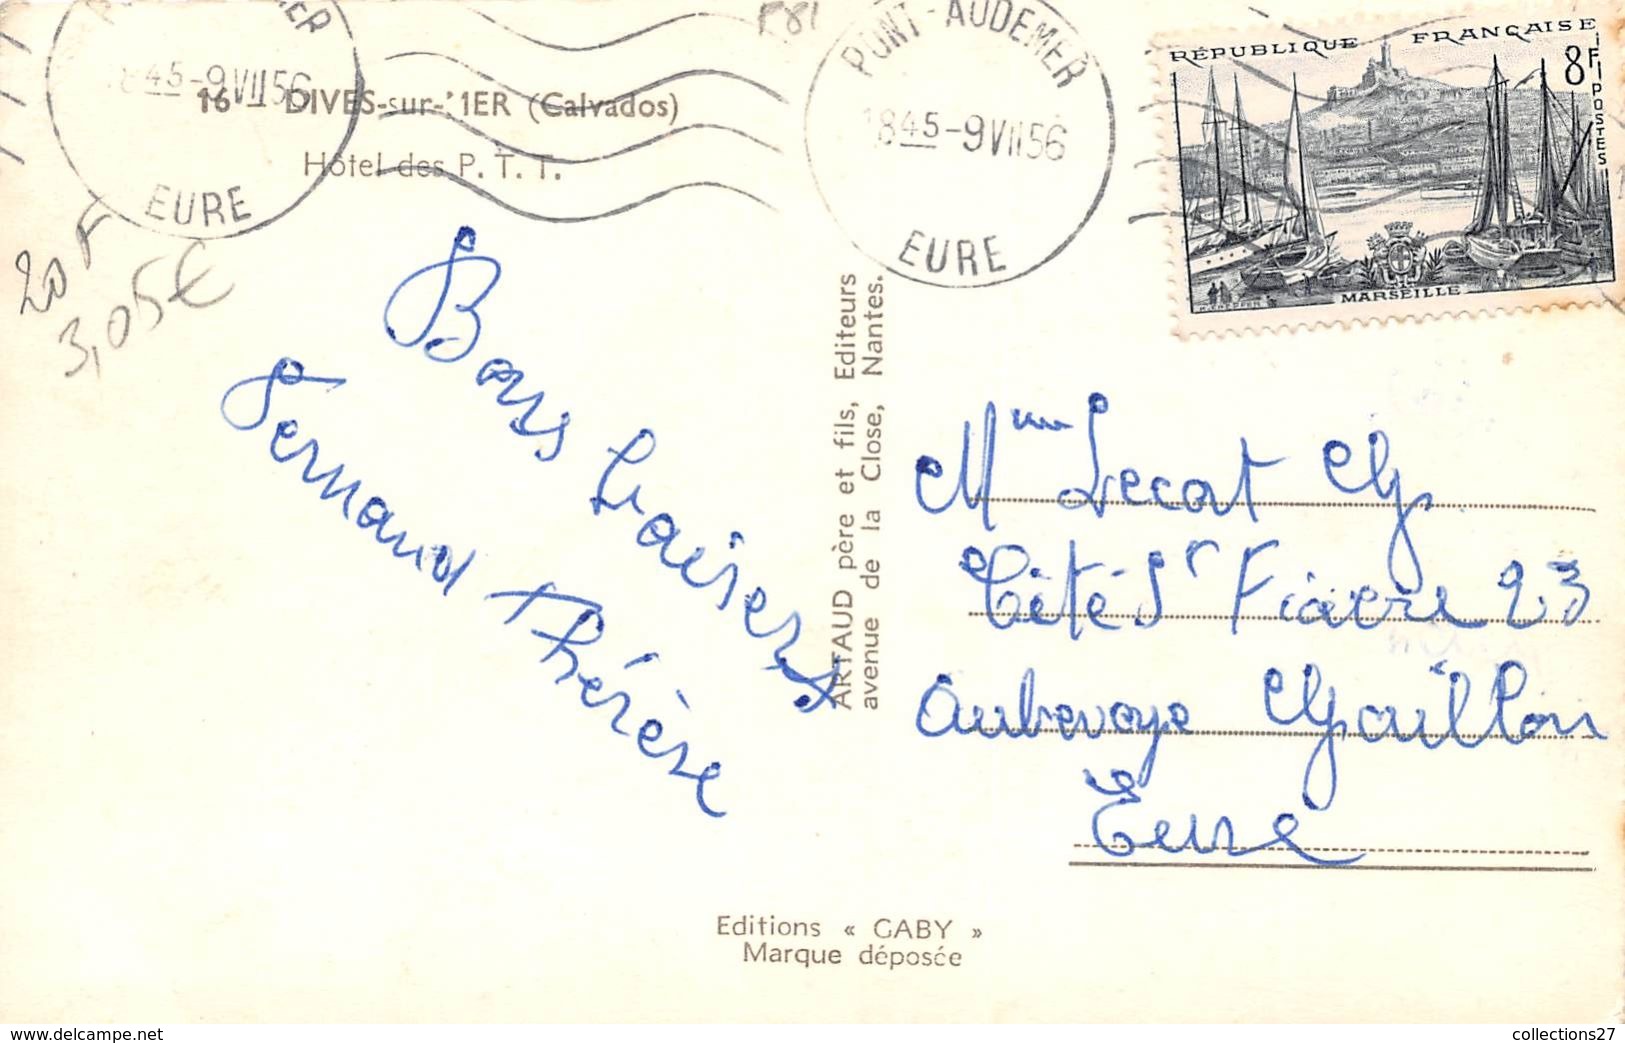 EURE
1845-9VII56
16 DIVES-sur-MER (Calvados)
Hôtel des P. T. T.
PONT-AUDEMER
1845-9VII56
EURE
RÉPUBLIQUE FRANÇAISE
8F
POSTES
MARSEILLE
20 F
3,05€
Bons baisers
Fernand Thérèse
ARTAUD père et fils, Editeurs
avenue de la Close, Nantes.
Mme Lecat
Cité St Fiacre 23
Aubevoye Gaillon
Eure
Editions « GABY »
Marque déposée
www.delcampe.net
collections27